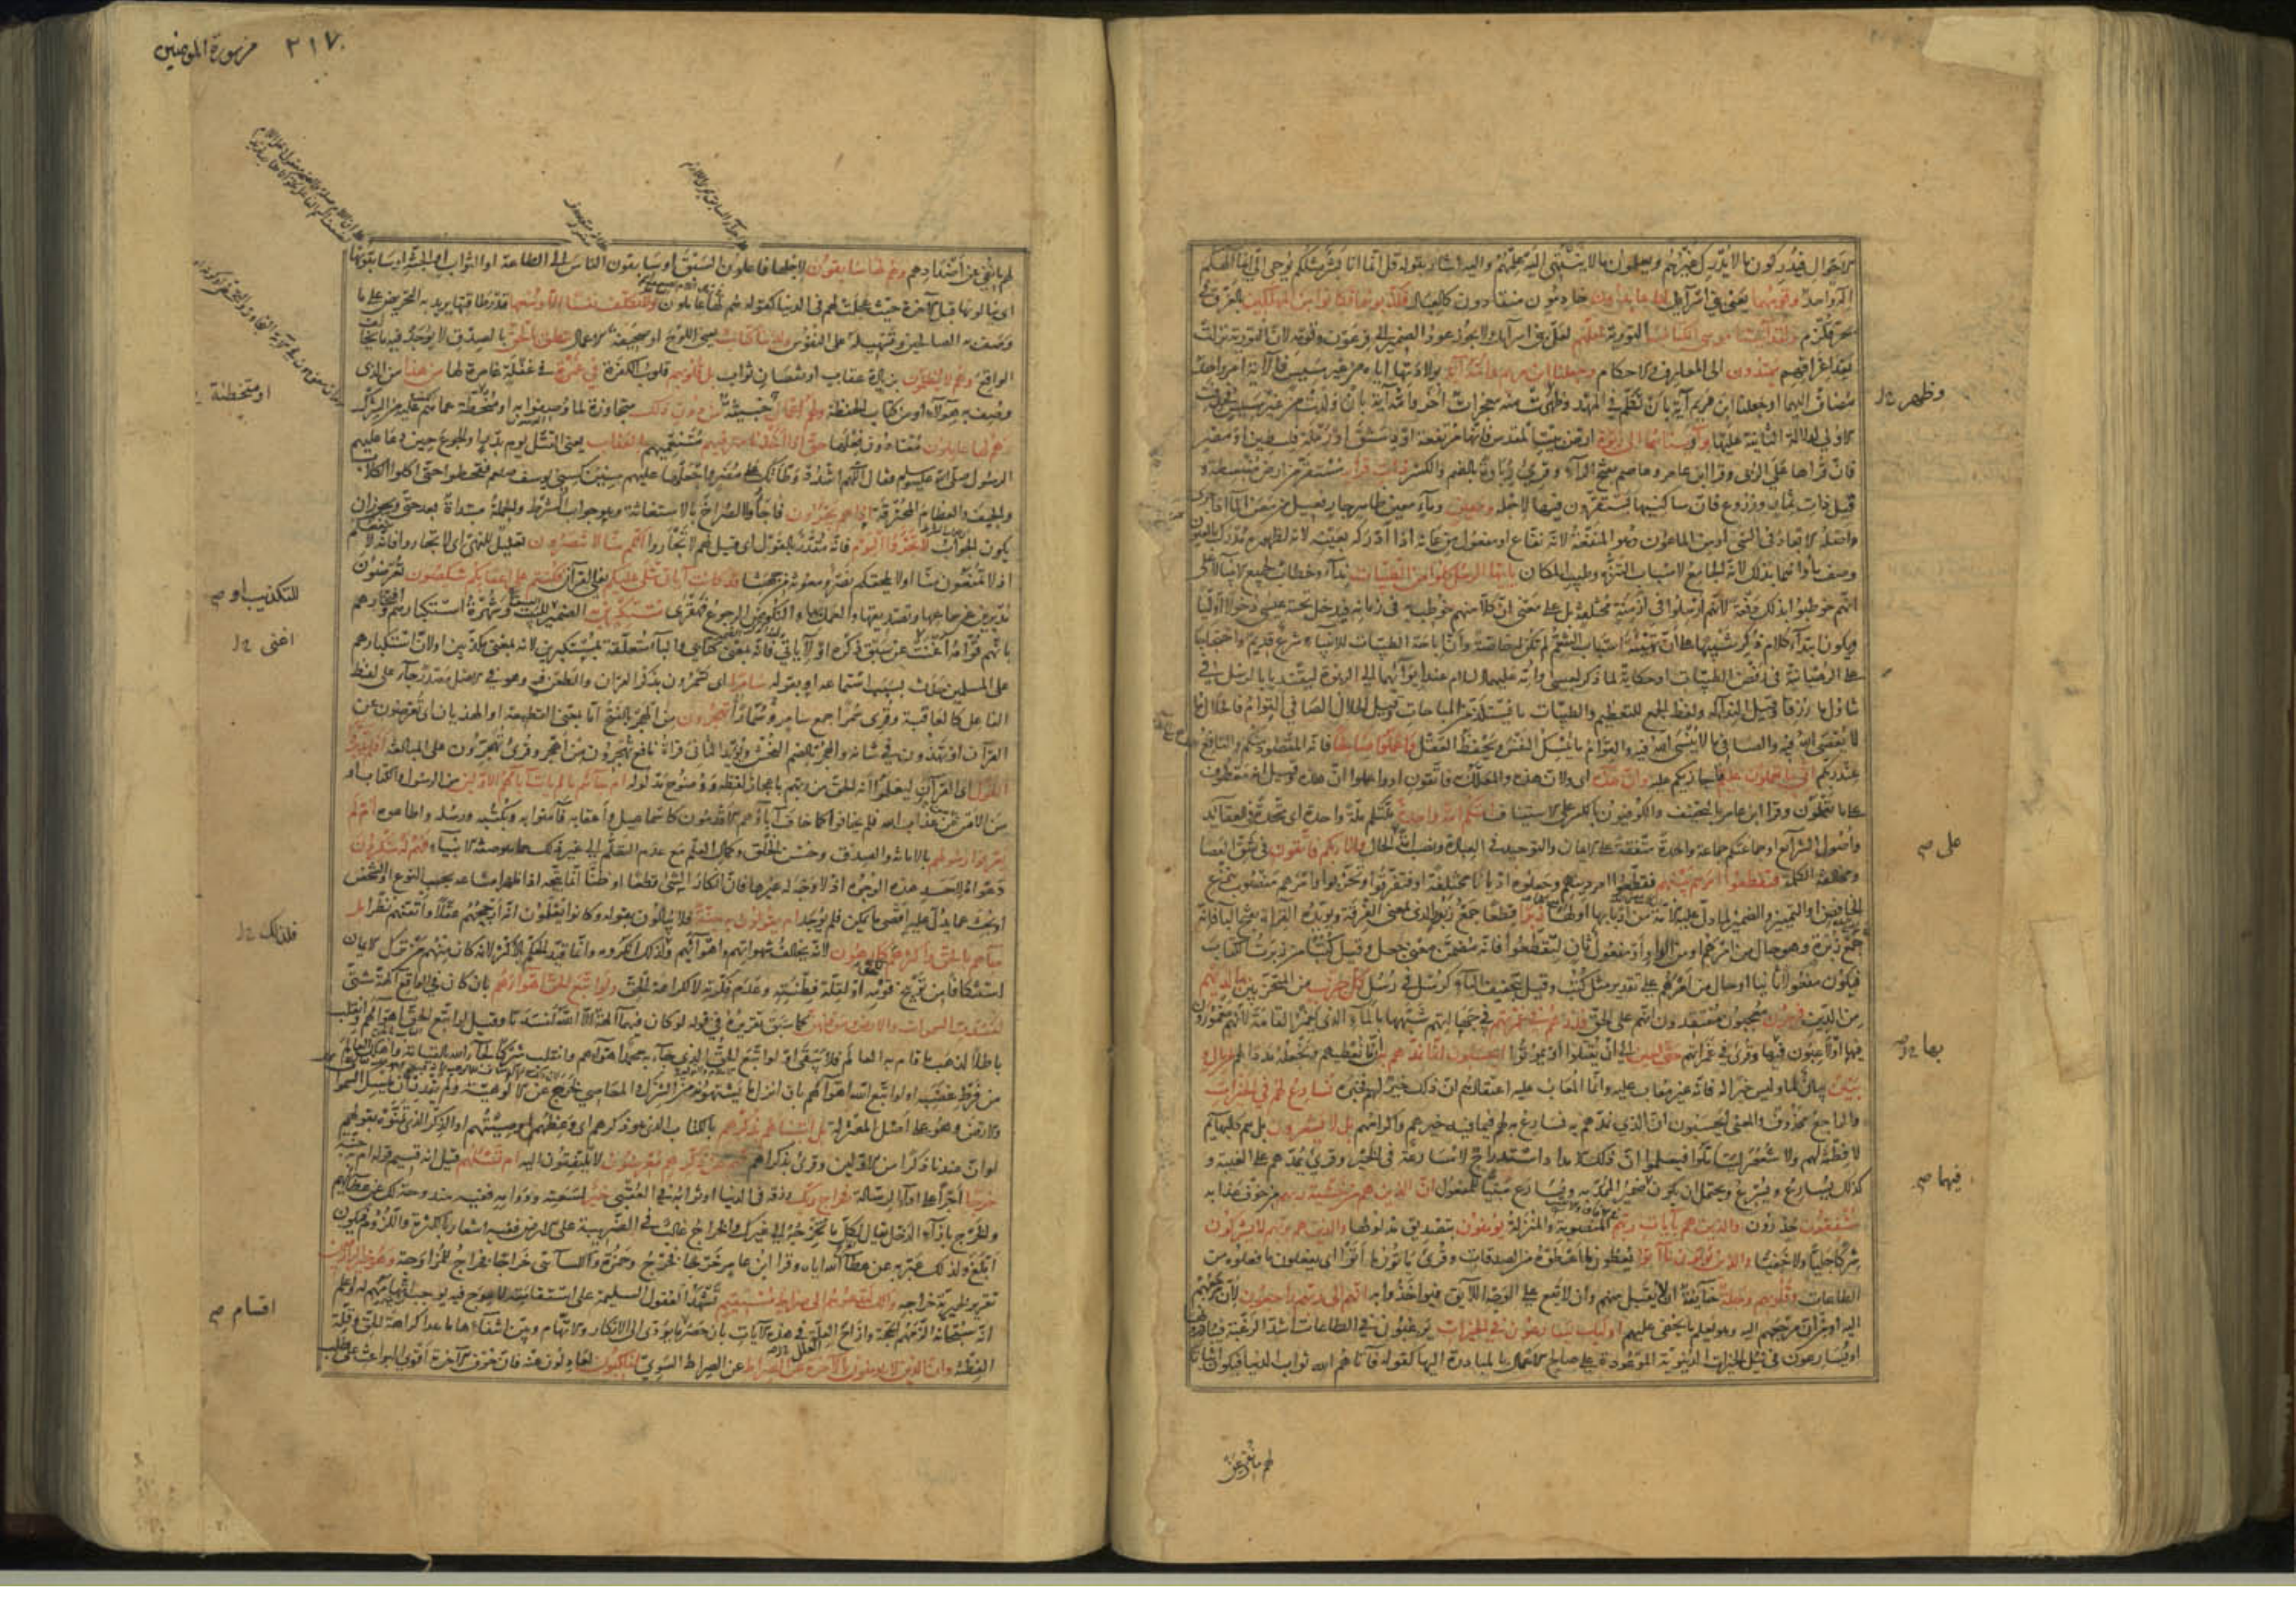 الاحوال فيدركون ما لا يدرك غيرهم ويعلمون ما لا ينتهى اليه علمهم واليه اشار بقوله قل انما انا بشر مثلكم يوحى الي انما الهكم
اله واحد وقومهما يعنى بنى اسرآئيل لنا عابدون خادمون منقادون كالعباد فكذبوهما فكانوا من المهلكين بالغرق فى
بحر قلزم ولقد آتينا موسى الكتاب التورية لعلهم لعل بنى اسرآئيل ولا يجوز عود الضمير الى فرعون وقومه لان التورية نزلت
بعد اغراقهم يهتدون الى المعارف والاحكام وجعلنا ابن مريم وامه آية بولادتها اياه من غير مسيس فالآية امر واحد
مضاف اليهما او جعلنا ابن مريم آية بان تكلم فى المهد وظهرت منه معجزات اخر وامه آية بان ولدت من غير مسيس فحذفت
الاولى لدلالة الثانية عليها وآويناهما الى ربوة ارض بيت المقدس فانها مرتفعة او دمشق او رملة فلسطين او مصر
فان قراها على الربى وقرا ابن عامر وعاصم بفتح الرآء وقرئ رباوة بالضم والكسر ذات قرار مستقر من ارض منبسطة و
قيل ذات ثمار وزروع فان ساكنيها يستقرون فيها لاجلها ومعين ومآء معين ظاهر جار فعيل من معن المآء اذا جرى
واصله الابعاد فى الشئ او من الماعون وهو المنفعة لانه نفاع او مفعول من عانه اذا ادركه بعينه لانه لظهوره مدرك بالعيون
وصف مآءها بذلك لانه الجامع لاسباب التنزه وطيب المكان يا ايها الرسل كلوا من الطيبات ندآء وخطاب لجميع الانبيآء لا على
انهم خوطبوا بذلك دفعة لانهم ارسلوا فى ازمنة مختلفة بل على معنى ان كلا منهم خوطب به فى زمانه فيدخل تحته عيسى دخولا اوليا
ويكون ابتدآء كلام ذكر تنبيها على ان تهيئة اسباب التنعم لم تكن له خاصة وان اباحة الطيبات للانبيآء شرع قديم واحتجاجا
على الرهبانية فى رفض الطيبات او حكاية لما ذكر لعيسى وامه عليهما السلام عند ايوآئهما الى الربوة ليقتديا بالرسل فى
تناول ما رزقا وقيل الندآء له ولفظ الجمع للتعظيم والطيبات ما يستلذ من المباحات وقيل الحلال الصافى القوام فالحلال ما
لا يعصى الله فيه والصافى ما لا ينسى الله فيه والقوام ما يمسك النفس ويحفظ العقل واعملوا صالحا فانه المقصود منكم والنافع
عند ربكم انى بما تعملون عليم فاجازيكم عليه وان هذه اى ولان هذه والمعلل به فاتقون او واعلموا ان هذه وقيل انه معطوف
على ما تعملون وقرا ابن عامر بالتخفيف والكوفيون بالكسر على الاستيناف امتكم امة واحدة ملتكم ملة واحدة اى متحدة فى العقآئد
واصول الشرآئع او جماعتكم جماعة واحدة متفقة على الايمان والتوحيد فى العبادة ونصب امة على الحال وانا ربكم فاتقون فى شق العصا
ومخالفة الكلمة فتقطعوا امرهم بينهم فقطعوا امر دينهم وجعلوه اديانا مختلفة او فتفرقوا وتحزبوا وامرهم منصوب بنزع
الخافض او التمييز والضمير لما دل عليه الامة من اربابها او لها زبرا قطعا جمع زبور الذى بمعنى الفرقة ويؤيده القرآءة بفتح البآء فانه
جمع زبرة وهو حال من امرهم او من الواو او مفعول ثان لتقطعوا فانه متضمن معنى جعل وقيل كتبا من زبرت الكتاب
فيكون مفعولا ثانيا او حالا من امرهم على تقدير مثل كتب وقرئ بتخفيف البآء كرسل فى رسل كل حزب من المتحزبين بما لديهم
من الدين فرحون معجبون معتقدون انهم على الحق فذرهم فى غمرتهم فى جهالتهم شبهها بالمآء الذى يغمر القامة لانهم مغمورون
فيها او لاعبون فيها وقرئ فى غمراتهم حتى حين الى ان يقتلوا او يموتوا ايحسبون انما نمدهم به ان ما نعطيهم ونجعله مددا لهم من مال و
بنين بيان لما وليس خبرا له فانه غير معاب عليه وانما المعاب عليه اعتقادهم ان ذلك خير لهم فخبره نسارع لهم فى الخيرات
والراجع محذوف والمعنى ايحسبون ان الذى نمدهم به نسارع به لهم فيما فيه خيرهم واكرامهم بل لا يشعرون بل هم كالبهآئم
لا فطنة لهم ولا شعور ليتأملوا فيعلموا ان ذلك الامداد استدراج لا مسارعة فى الخير وقرئ يمدهم على الغيبة و
كذلك يسارع ويسرع ويحتمل ان يكون فيهما ضمير الممد به ويسارع مبنيا للمفعول ان الذين هم من خشية ربهم من خوف عذابه
مشفقون حذرون والذين هم بآيات ربهم المنصوبة والمنزلة يؤمنون بتصديق مدلولها والذين هم بربهم لا يشركون
شركا جليا ولا خفيا والذين يؤتون ما آتوا يعطون ما اعطوه من الصدقات وقرئ ياتون ما اتوا اى يفعلون ما فعلوه من
الطاعات وقلوبهم وجلة خآئفة ان لا يقبل منهم وان لا يقع على الوجه اللآئق فيؤاخذوا به انهم الى ربهم راجعون لان مرجعهم
اليه او من ان مرجعهم اليه وهو يعلم ما يخفى عليهم اولئك يسارعون فى الخيرات يرغبون فى الطاعات اشد الرغبة فيبادرونها
او يسارعون فى نيل الخيرات الدنيوية الموعودة على صالح الاعمال بالمبادرة اليها كقوله فآتاهم الله ثواب الدنيا فيكون اثباتا
وظهر
على صح
بها
فيها صح
لهم ما نفى عن
من سورة المؤمنين ٣١٧
لهم ما نفى عن اضدادهم وهم لها سابقون لاجلها فاعلون السبق او سابقون الناس الى الطاعة او الثواب او الجنة او سابقونها
اى ينالونها قبل الآخرة حيث عجلت لهم فى الدنيا كقوله هم لها عاملون ولا نكلف نفسا الا وسعها قدر طاقتها يريد به التحريض على ما
وصف به الصالحين وتسهيله على النفوس ولدينا كتاب يعنى اللوح او صحيفة الاعمال ينطق بالحق بالصدق لا يوجد فيه ما يخالف
الواقع وهم لا يظلمون بزيادة عقاب او نقصان ثواب بل قلوبهم قلوب الكفرة فى غمرة فى غفلة غامرة لها من هذا من الذى
وصف به هؤلآء او من كتاب الحفظة ولهم اعمال خبيثة من دون ذلك متجاوزة لما وصفوا به او متخطية عما هم عليه من الشرك
هم لها عاملون معتادون فعلها حتى اذا اخذنا مترفيهم متنعميهم بالعذاب يعنى القتل يوم بدر او الجوع حين دعا عليهم
الرسول صلى الله عليه وسلم فقال اللهم اشدد وطأتك على مضر واجعلها عليهم سنين كسنى يوسف فقحطوا حتى اكلوا الكلاب
والجيف والعظام المحترقة اذا هم يجأرون فاجأوا الصراخ بالاستغاثة وهو جواب الشرط والجملة مبتدأة بعد حتى ويجوز ان
يكون الجواب لا تجأروا اليوم فانه مقدر بالقول اى قيل لهم لا تجأروا انكم منا لا تنصرون تعليل للنهى اى لا تجأروا فانه لا ينفعكم
اذ لا تمنعون منا او لا يلحقكم نصر ومعونة من جهتنا قد كانت آياتى تتلى عليكم يعنى القرآن فكنتم على اعقابكم تنكصون تعرضون
مدبرين عن سماعها وتصديقها والعمل بها والنكوص الرجوع قهقرى مستكبرين به الضمير للبيت وشهرة استكبارهم وافتخارهم
بانهم قوامه اغنت عن سبق ذكره او لآياتى فانه بمعنى كتابى والبآء متعلقة بمستكبرين لانه بمعنى مكذبين او لان استكبارهم
على المسلمين حدث بسبب استماعه او بقوله سامرا اى تسمرون بذكر القرآن والطعن فيه وهو فى الاصل مصدر جآء على لفظ
الفاعل كالعاقبة وقرئ سمرا جمع سامر وسمارا تهجرون من الهجر بالفتح اما بمعنى القطيعة او الهذيان اى تعرضون عن
القرآن او تهذون فى شانه والهجر بالضم الفحش ويؤيد الثانى قرآءة نافع تهجرون من اهجر وقرئ تهجرون على المبالغة افلم يدبروا
القول اى القرآن ليعلموا انه الحق من ربهم باعجاز لفظه ووضوح مدلوله ام جآءهم ما لم يات آبآءهم الاولين من الرسول والكتاب او
من الامن من عذاب الله فلم يخافوا كما خاف آبآؤهم الاقدمون كاسماعيل واعقابه فآمنوا به وبكتبه ورسله واطاعوه ام لم
يعرفوا رسولهم بالامانة والصدق وحسن الخلق وكمال العلم مع عدم التعلم الى غير ذلك مما هو صفة الانبيآء فهم له منكرون
دعواه لاحد هذه الوجوه اذ لا وجه له غيرها فان انكار الشئ قطعا او ظنا انما يتجه اذا ظهر امتناعه بحسب النوع او الشخص
او بحث عما يدل عليه اقصى ما يمكن فلم يوجد ام يقولون به جنة فلا يبالون بقوله وكانوا يعلمون انه ارجحهم عقلا واتقنهم نظرا بل
جآءهم بالحق واكثرهم للحق كارهون لانه يخالف شهواتهم واهوآئهم ولذلك انكروه وانما قيد الحكم بالاكثر لانه كان منهم من ترك الايمان
استنكافا من توبيخ قومه او لقلة فطنته وعدم فكرته لا لكراهة للحق ولو اتبع الحق اهوآءهم بان كان فى الواقع آلهة شتى
لفسدت السموات والارض ومن فيهن كما سبق تقريره فى قوله لو كان فيهما آلهة الا الله لفسدتا وقيل لو اتبع الحق اهوآءهم وانقلب
باطلا لذهب ما قام به العالم فلا يبقى او لو اتبع الحق الذى جآء به محمد اهوآءهم وانقلب شركا لجآء الله بالقيامة واهلك العالم
من فرط غضبه او لو اتبع الله اهوآءهم بان انزل ما يشتهونه من الشرك والمعاصى لخرج عن الالوهية ولم يقدر ان يمسك السموات
والارض وهو على اصل المعتزلة بل اتيناهم بذكرهم بالكتاب الذى هو ذكرهم اى وعظهم او صيتهم او الذكر الذى تمنوه بقولهم
لو ان عندنا ذكرا من الاولين وقرئ بذكراهم فهم عن ذكرهم معرضون لا يلتفتون اليه ام تسئلهم قيل انه قسيم قوله ام به جنة
خرجا اجرا على ادآء الرسالة فخراج ربك رزقه فى الدنيا او ثوابه فى العقبى خير لسعته ودوامه ففيه مندوحة لك عن عطآئهم
والخرج بازآء الدخل يقال لكل ما تخرجه الى غيرك والخراج غالب فى الضريبة على الارض ففيه اشعار بالكثرة واللزوم فيكون
ابلغ ولذلك عبر به عن عطآء الله اياه وقرا ابن عامر خرجا فخرج وحمزة والكسآئى خراجا فخراج للمزاوجة وهو خير الرازقين
تقرير لخيرية خراجه وانك لتدعوهم الى صراط مستقيم تشهد العقول السليمة على استقامته لا عوج فيه يوجب اتهامهم له واعلم
انه سبحانه الزمهم الحجة وازاح العلة فى هذه الآيات بان حصر ما يؤدى الى الانكار والاتهام وبين انتفآءها ما عدا كراهة الحق وقلة
الفطنة وان الذين لا يؤمنون بالآخرة عن الصراط عن الصراط السوى لناكبون لعادلون عنه فان خوف الآخرة اقوى البواعث على طلب
او متخطية
للتكذيب او صح
اغنى
فلذلك
اقسام صح